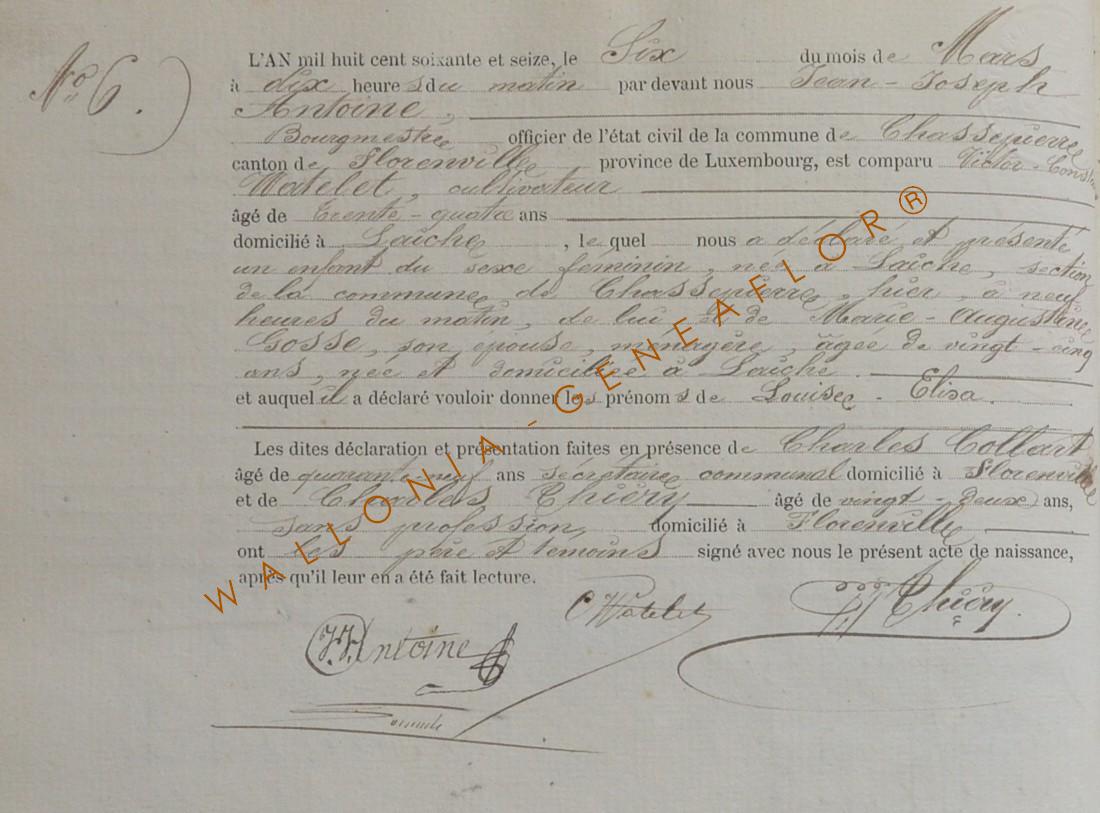 N° 6.
L'AN mil huit cent soixante et seize, le Six du mois de Mars
à dix heures du matin par devant nous Jean-Joseph
Antoine,
Bourgmestre officier de l'état civil de la commune de Chassepierre
canton de Florenville province de Luxembourg, est comparu Victor-Const
Watelet, cultivateur
âgé de trente-quatre ans
domicilié à Laiche, le quel nous a déclaré et présenté
un enfant du sexe féminin, née à Laiche, section
de la commune de Chassepierre, hier, à neuf
heures du matin, de lui et de Marie-Augustine
Gosse, son épouse, ménagère, âgée de vingt-cinq
ans, née et domiciliée à Laiche.
et auquel il a déclaré vouloir donner les prénoms de Louise-Elisa.
Les dites déclaration et présentation faites en présence de Charles Collart
âgé de quarante-neuf ans secrétaire communal domicilié à Florenville
et de Charles Thiéry âgé de vingt-deux ans,
sans profession, domicilié à Florenville
ont les père et témoins signé avec nous le présent acte de naissance,
après qu'il leur en a été fait lecture.
C Watelet
Thiéry.
J.J. Antoine
WALLONIA-GENEAFLOR®